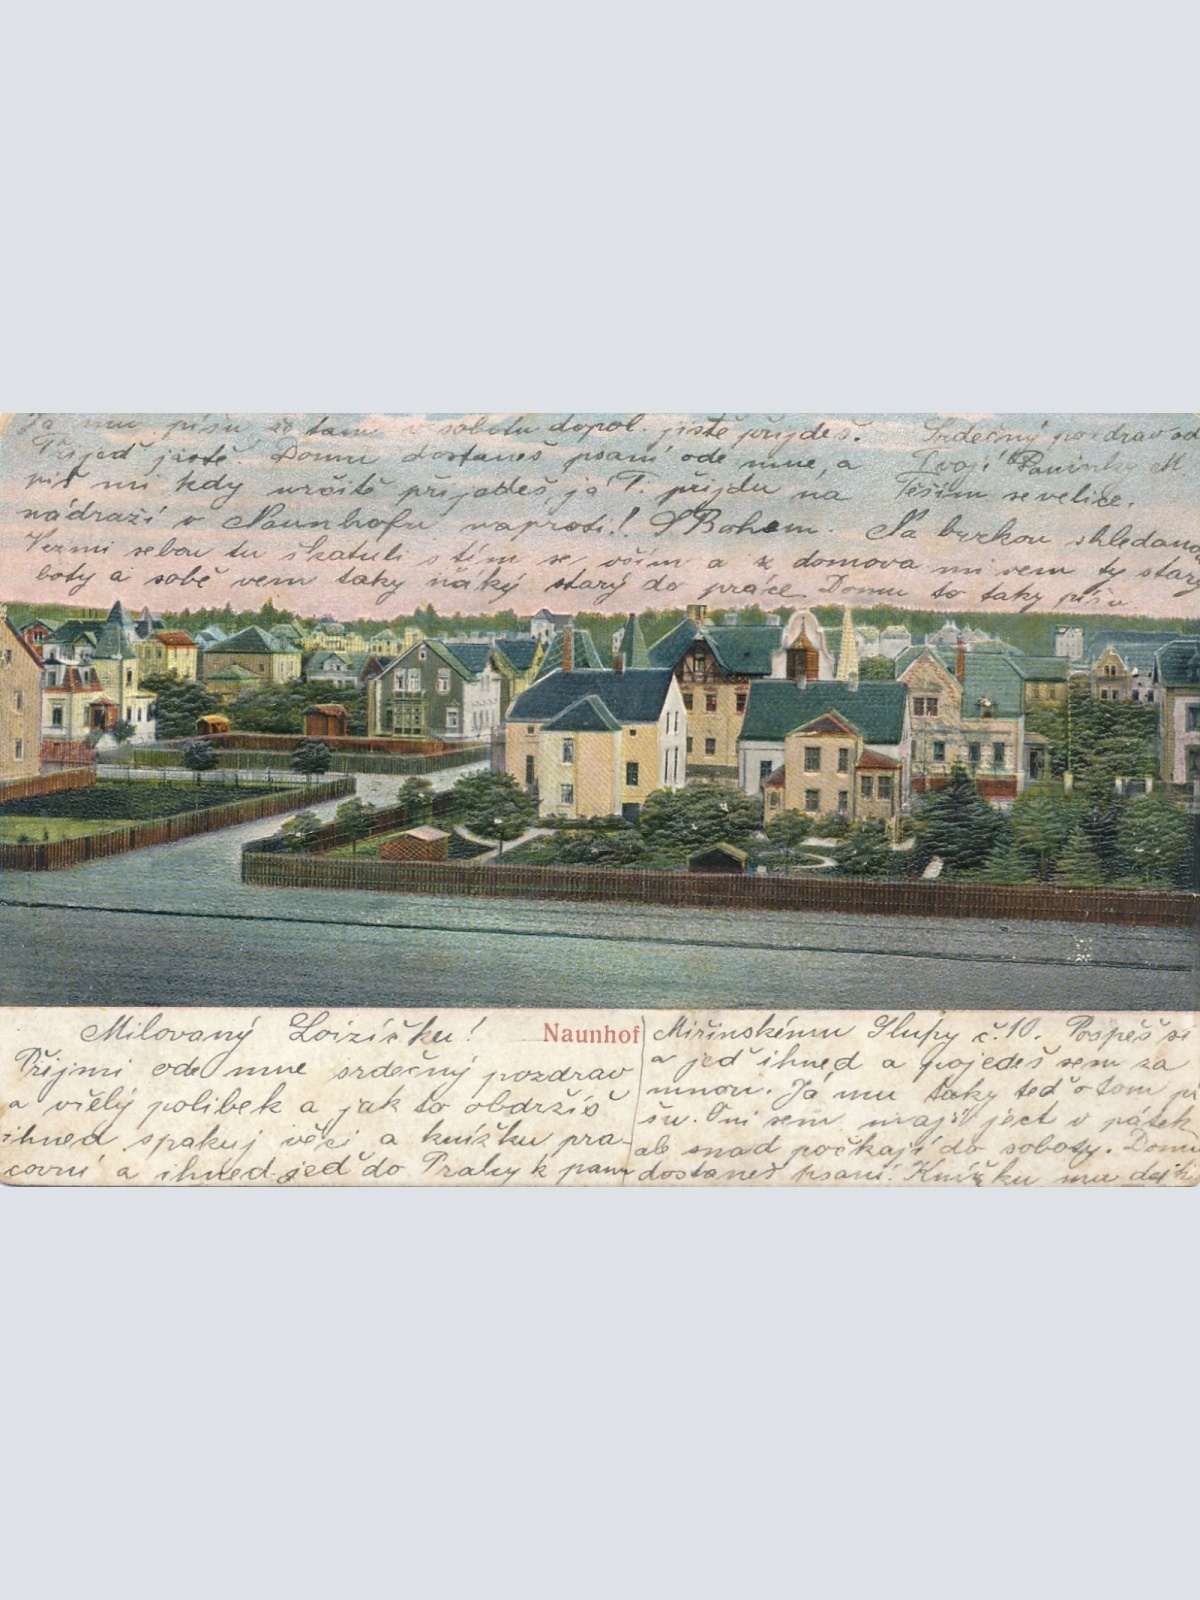 Milovaný Loizíčku!
Přijmi ode mne srdečný pozdrav
a vřelý polibek a jak to obdržíš
ihned spakuj věci a knížku pra-
covní a ihned jeď do Prahy k panu
Naunhof
Miřinskému Slupy č. 10. Pospěš si
a jeď ihned a pojedeš sem za
mnou. Já mu taky teď o tom pí
šu. Oni sem mají ject v pátek
ale snad počkají do soboty. Domu
dostaneš psaní. Knížku mu dej
Já mu píšu že tam v sobotu dopol. jistě přijdeš.
Přijeď jistě. Domu dostaneš psaní ode mne, a
piš mi kdy určitě přijedeš, já T. přijdu na
nádraží v Naunhofu naproti! S Bohem. Na brzkou shledanou
Vezmi sebou tu škatuli s tím se vším a z domova mi vem ty starý
boty a sobě vem taky ňáký starý do práce. Domu to taky píšu
Srdečný pozdrav od
Tvojí Paninky M
Těším se velice.